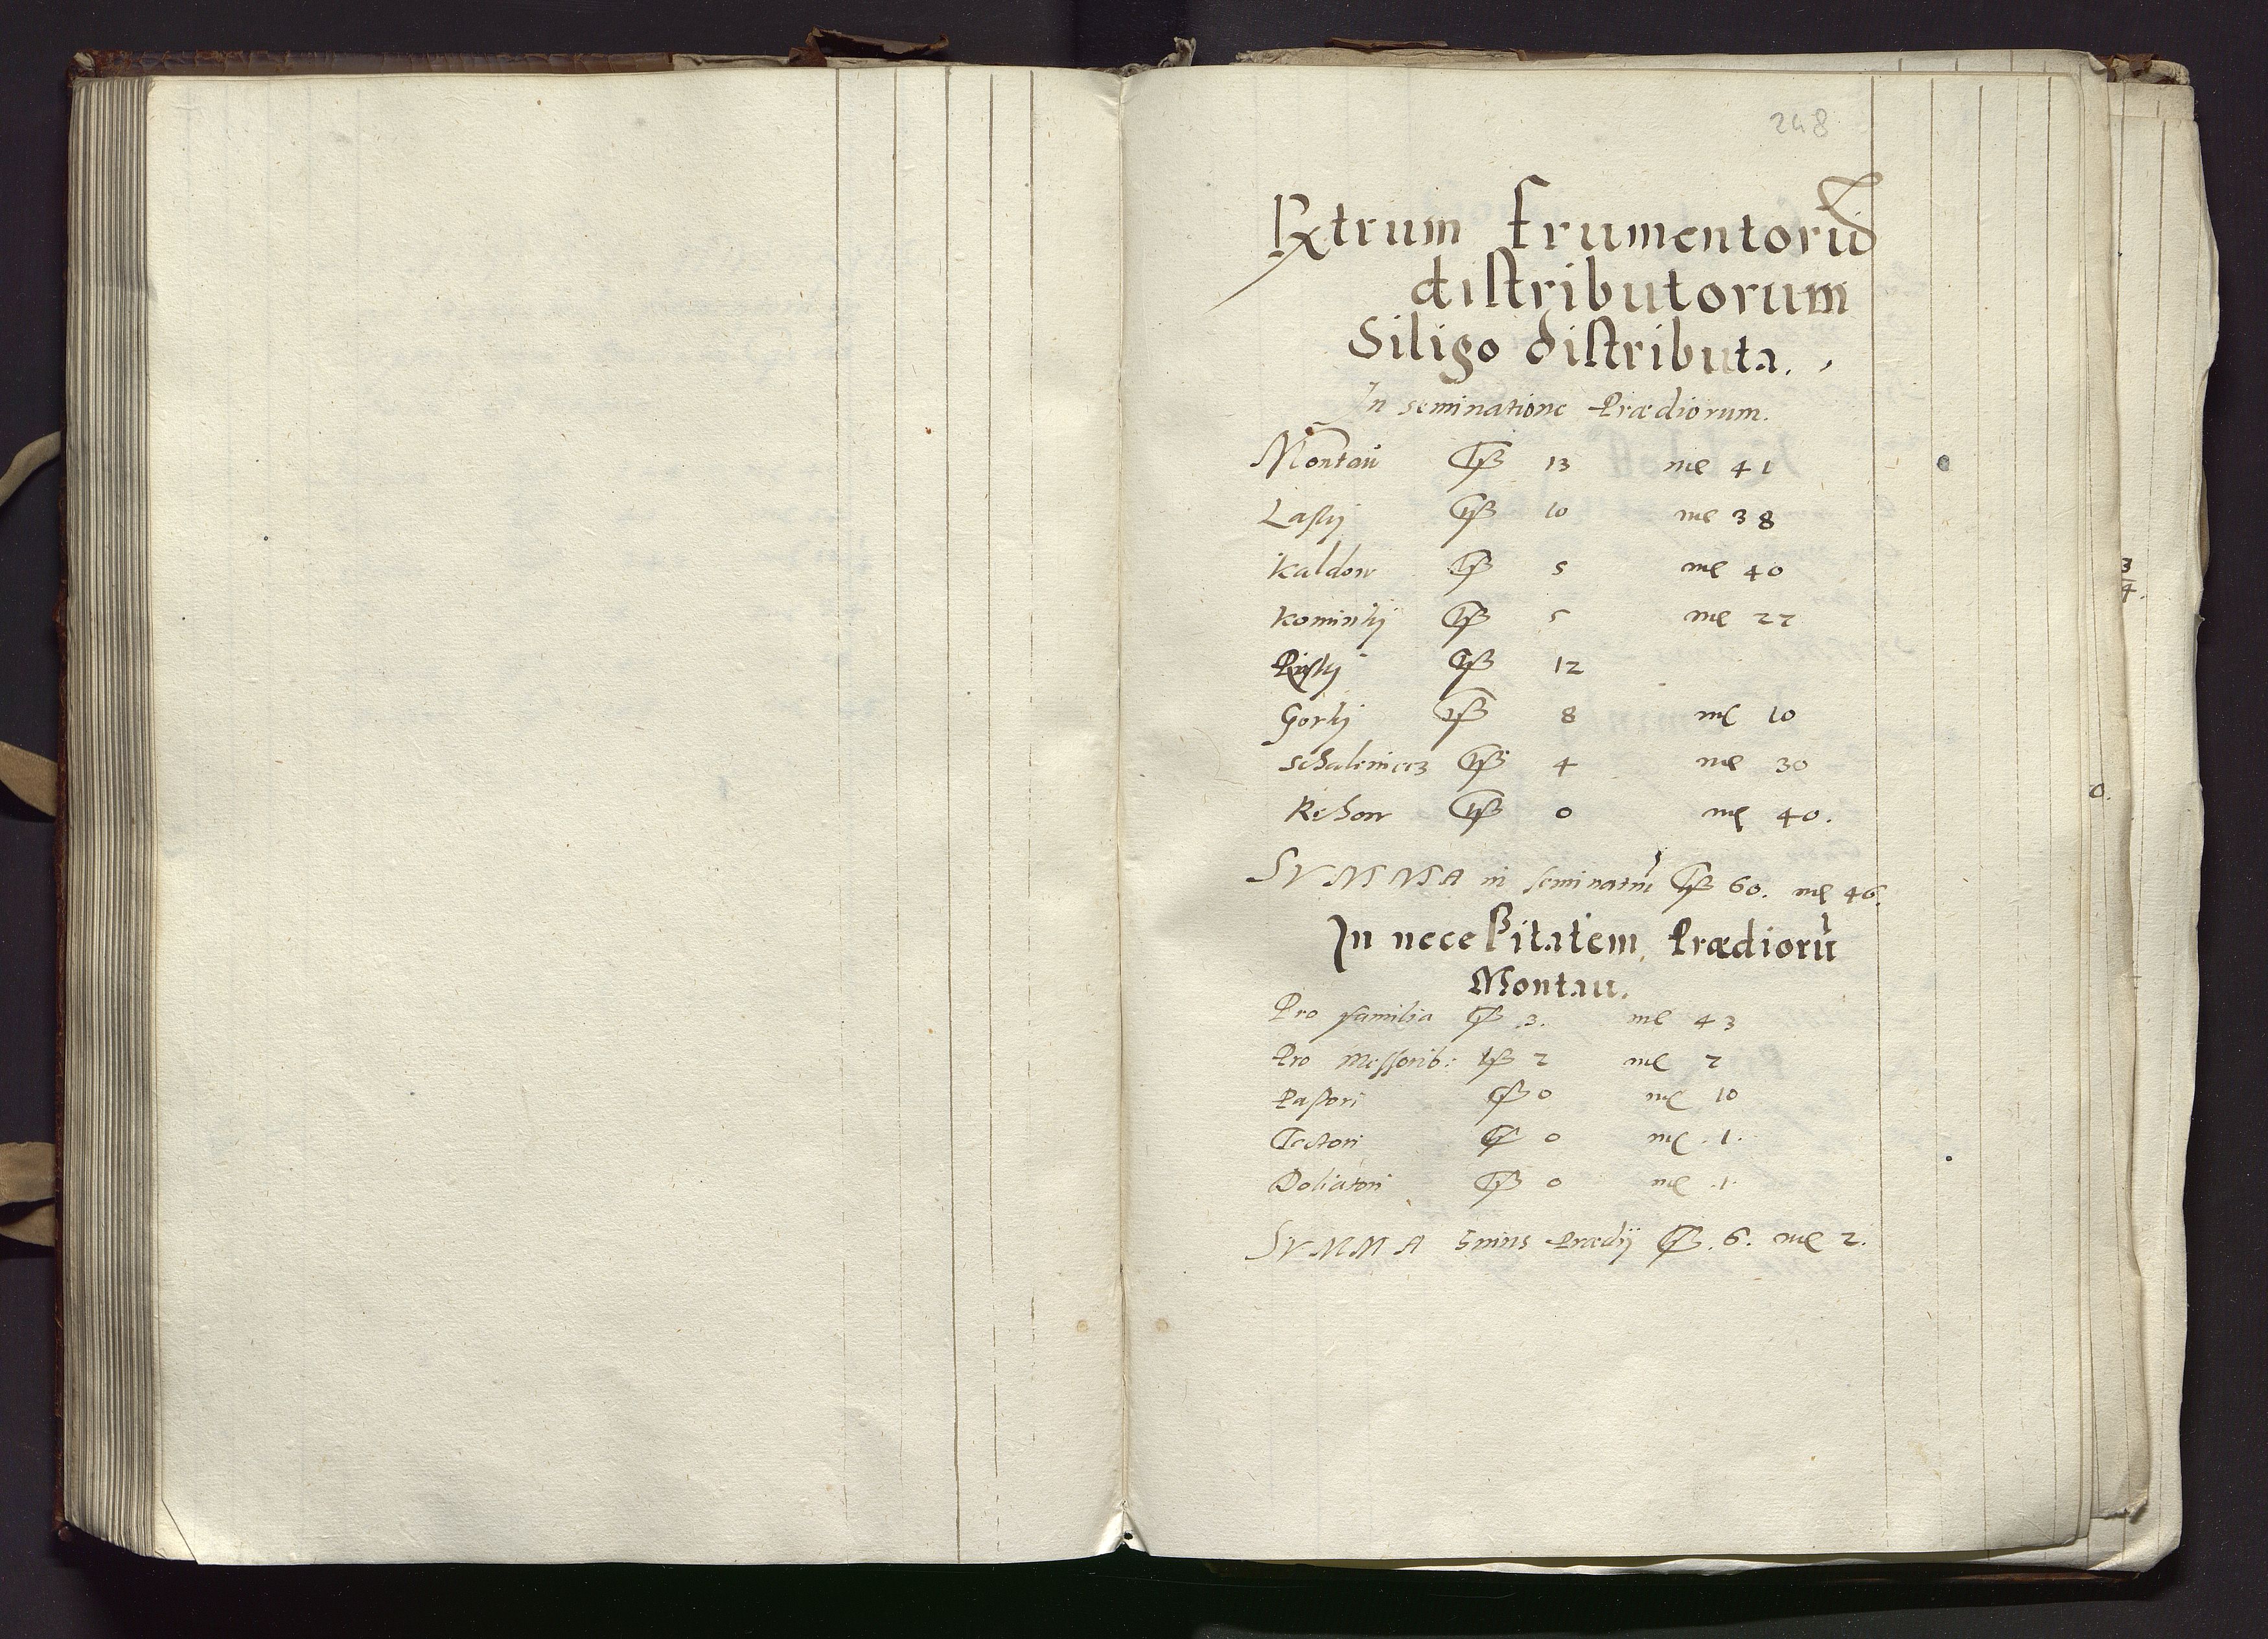 248
Rxtrum frumentorũ
distributorum
Siligo distributa.
In seminatione Prædiorum.
Montaů 13 me 41
Lasky 10 me 38
Kaldow 5 me 40
Kominky 5 me 22
12
Gorky 8 me 10
4 me 30
0 me 40.
SVMMA in seminatũ 60. me 46.
In neceßitatem Prædiorũ
Montau.
Pro familia 3. me 43
Pro Messorib: 2 me 2
Pastori 0 me 10
Tectori 0 me 1.
Doliatori 0 me 1
SVMMA Prædij 6. me 2.
3
4.
0.